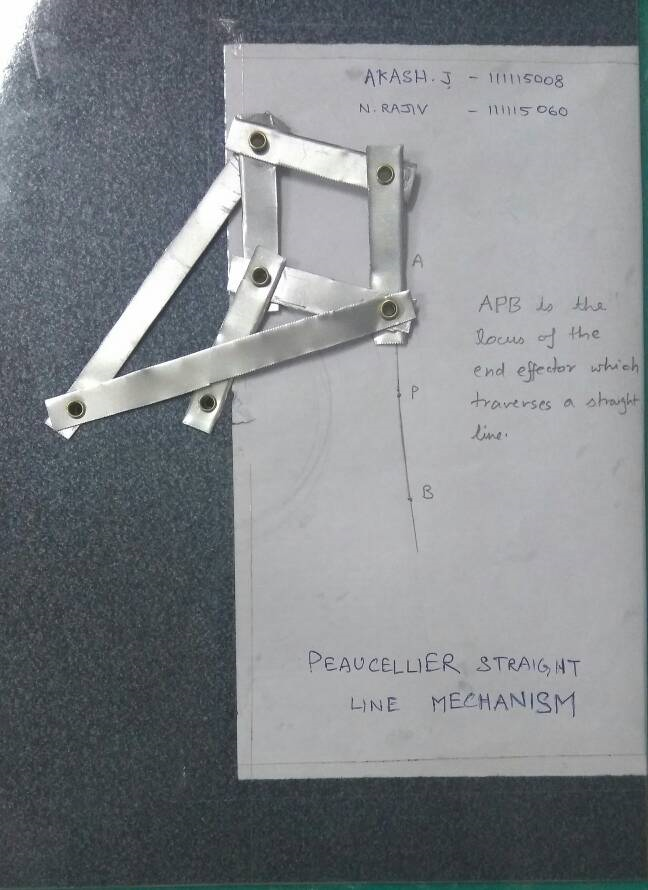 AKASH.J - 111115008
N. RAJIV - 111115060
A
APB is the
locus of the
end effector which
traverses a straight
line.
P
B
PEAUCELLIER STRAIGHT
LINE MECHANISM